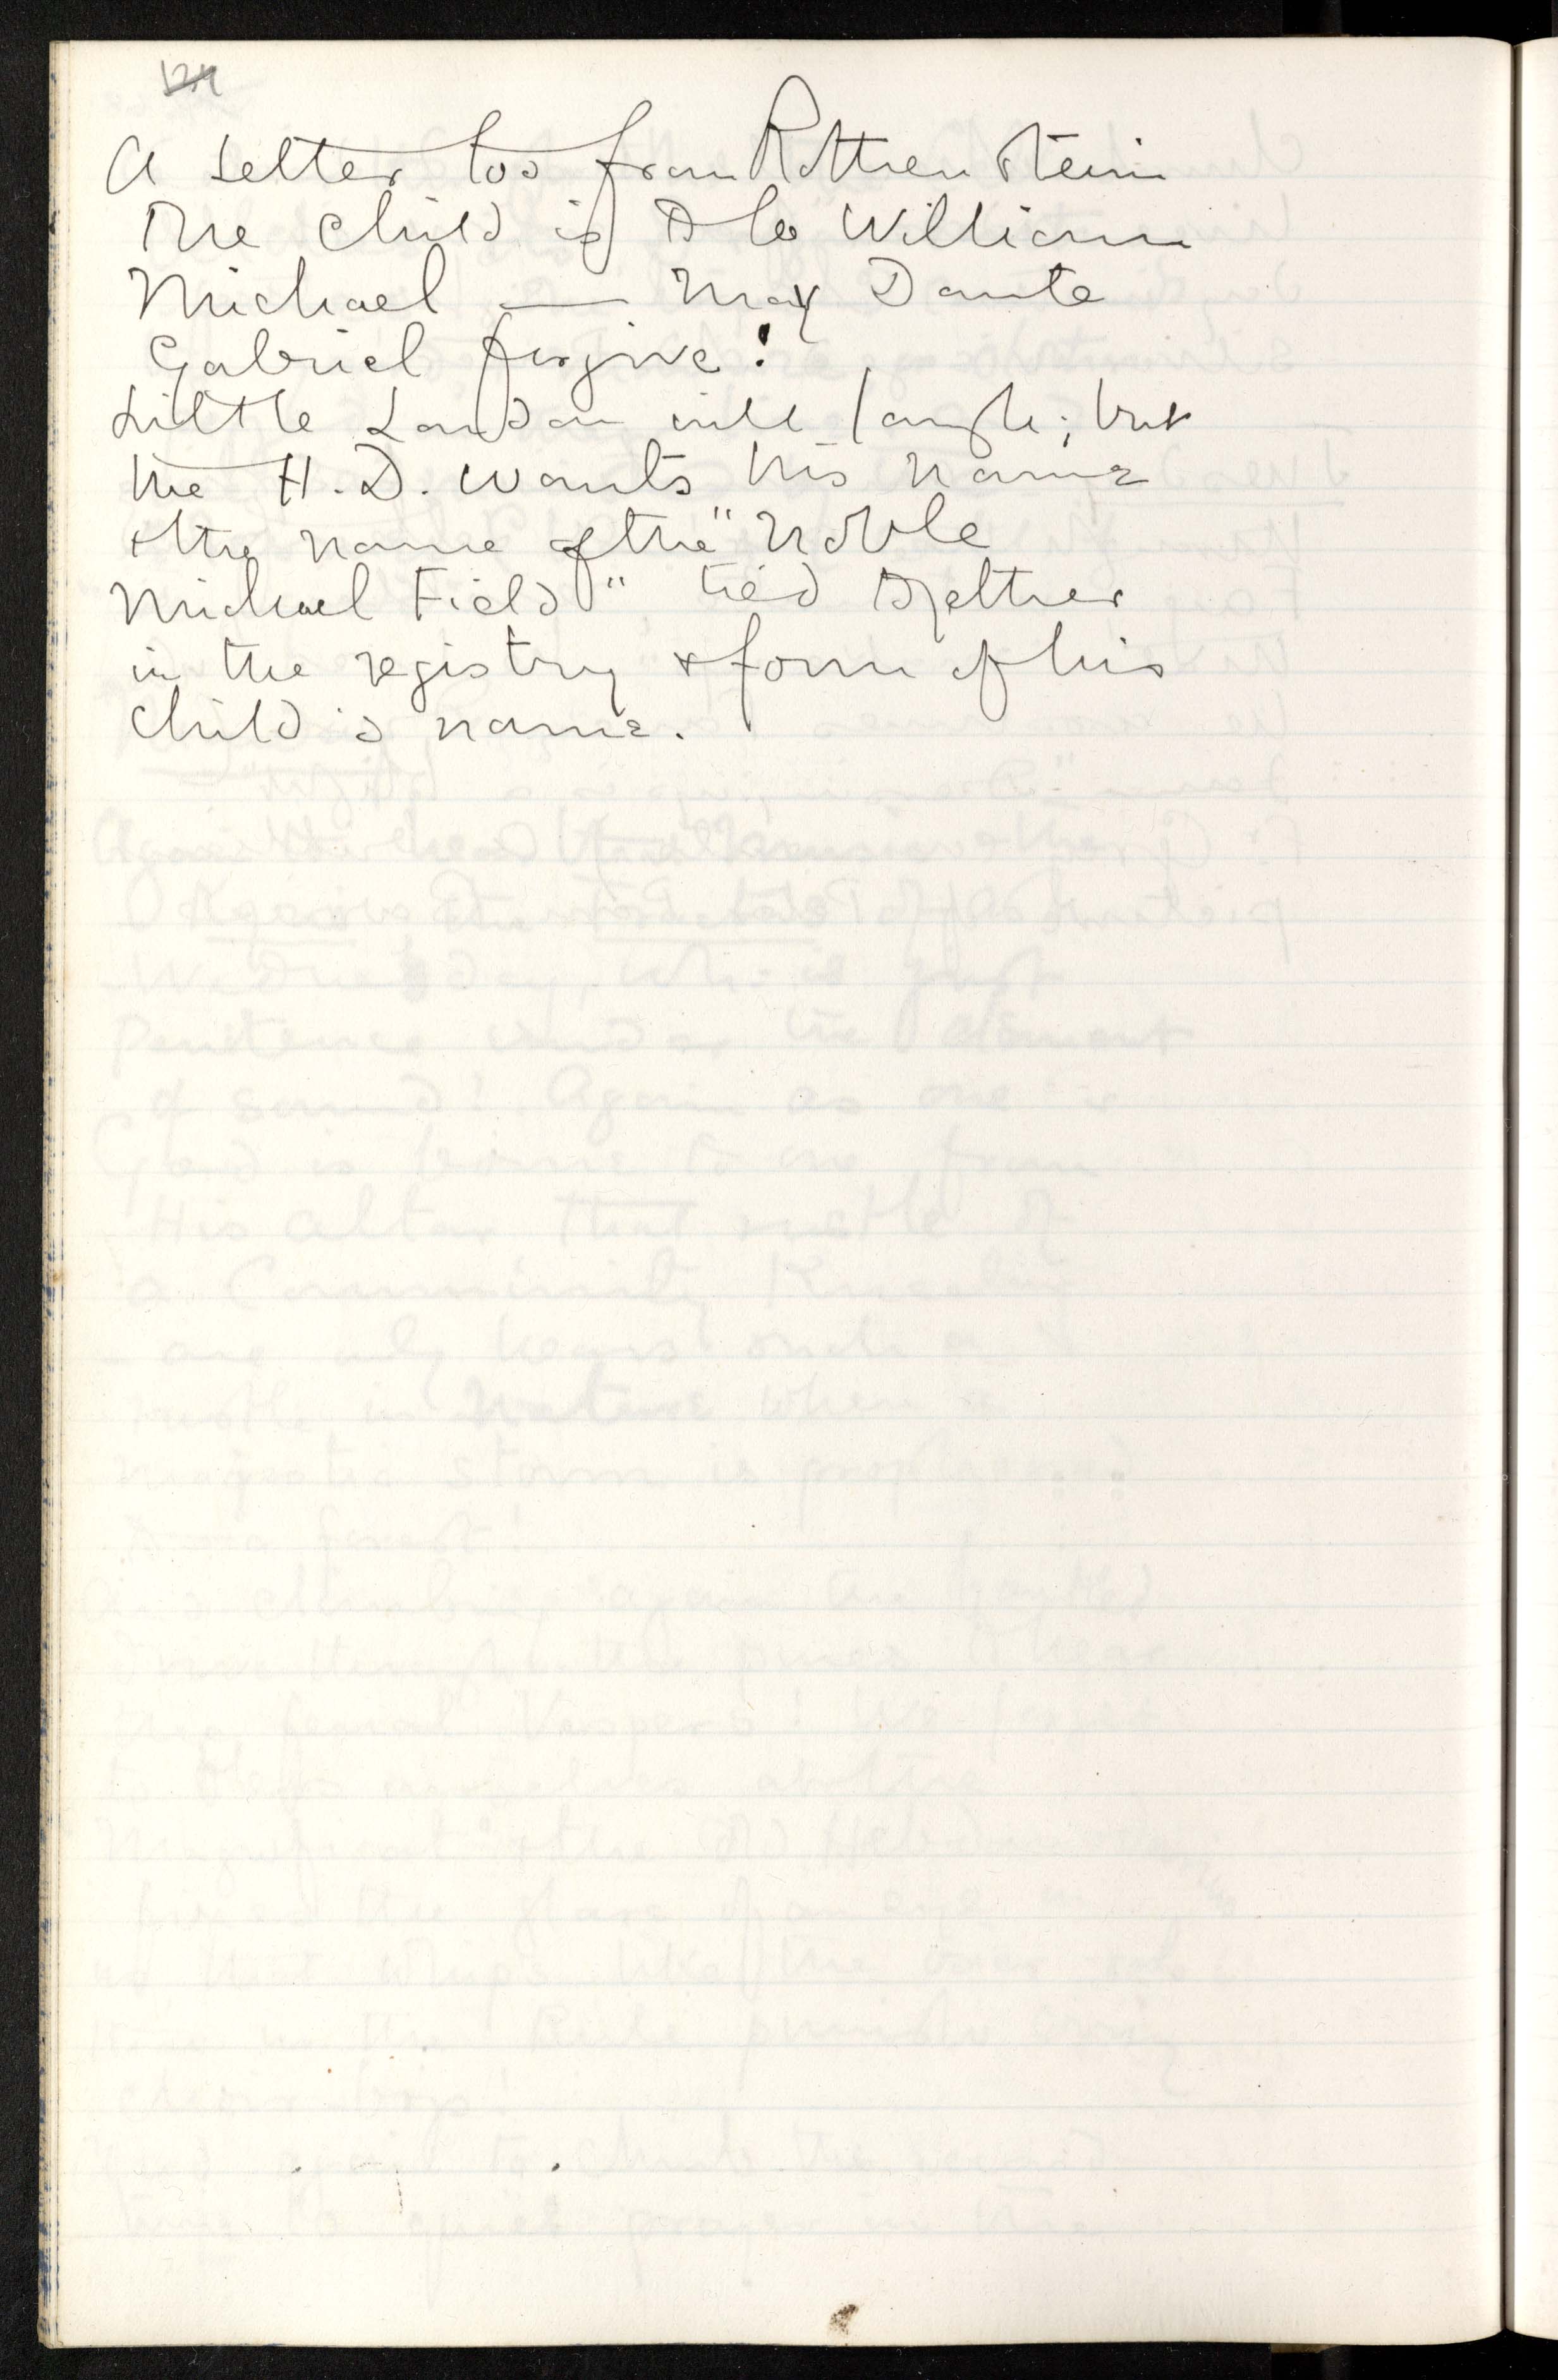 A letter too from Rothenstein
The child is to be William
Michael — May Dante
Gabriel forgive!
Little London will laugh; but
the H.D. wants his name
& the name of the "noble
Michael Field" tied together
in the registry & form of his
child's name.